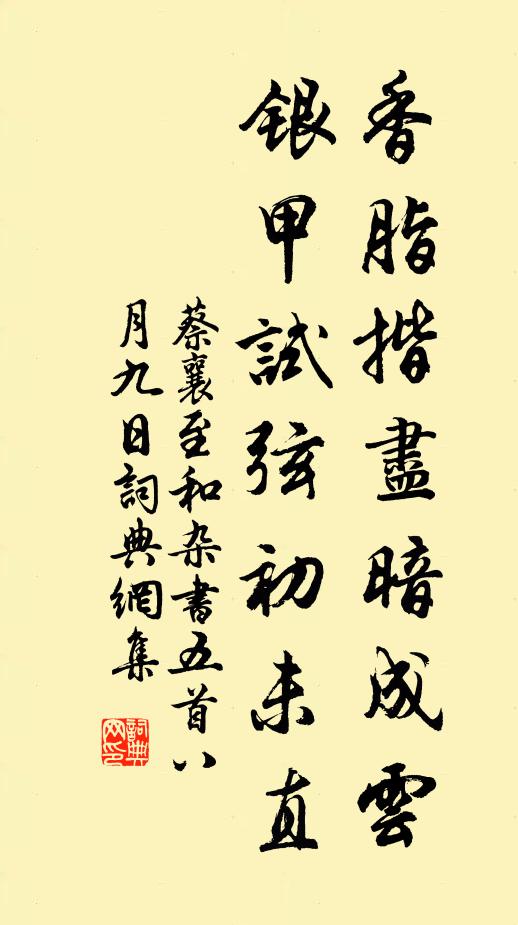 香脂揩盡暗成雲
銀甲試弦初未直
蔡襄至和杂書五首八
月九日詞典網集
詞典網印